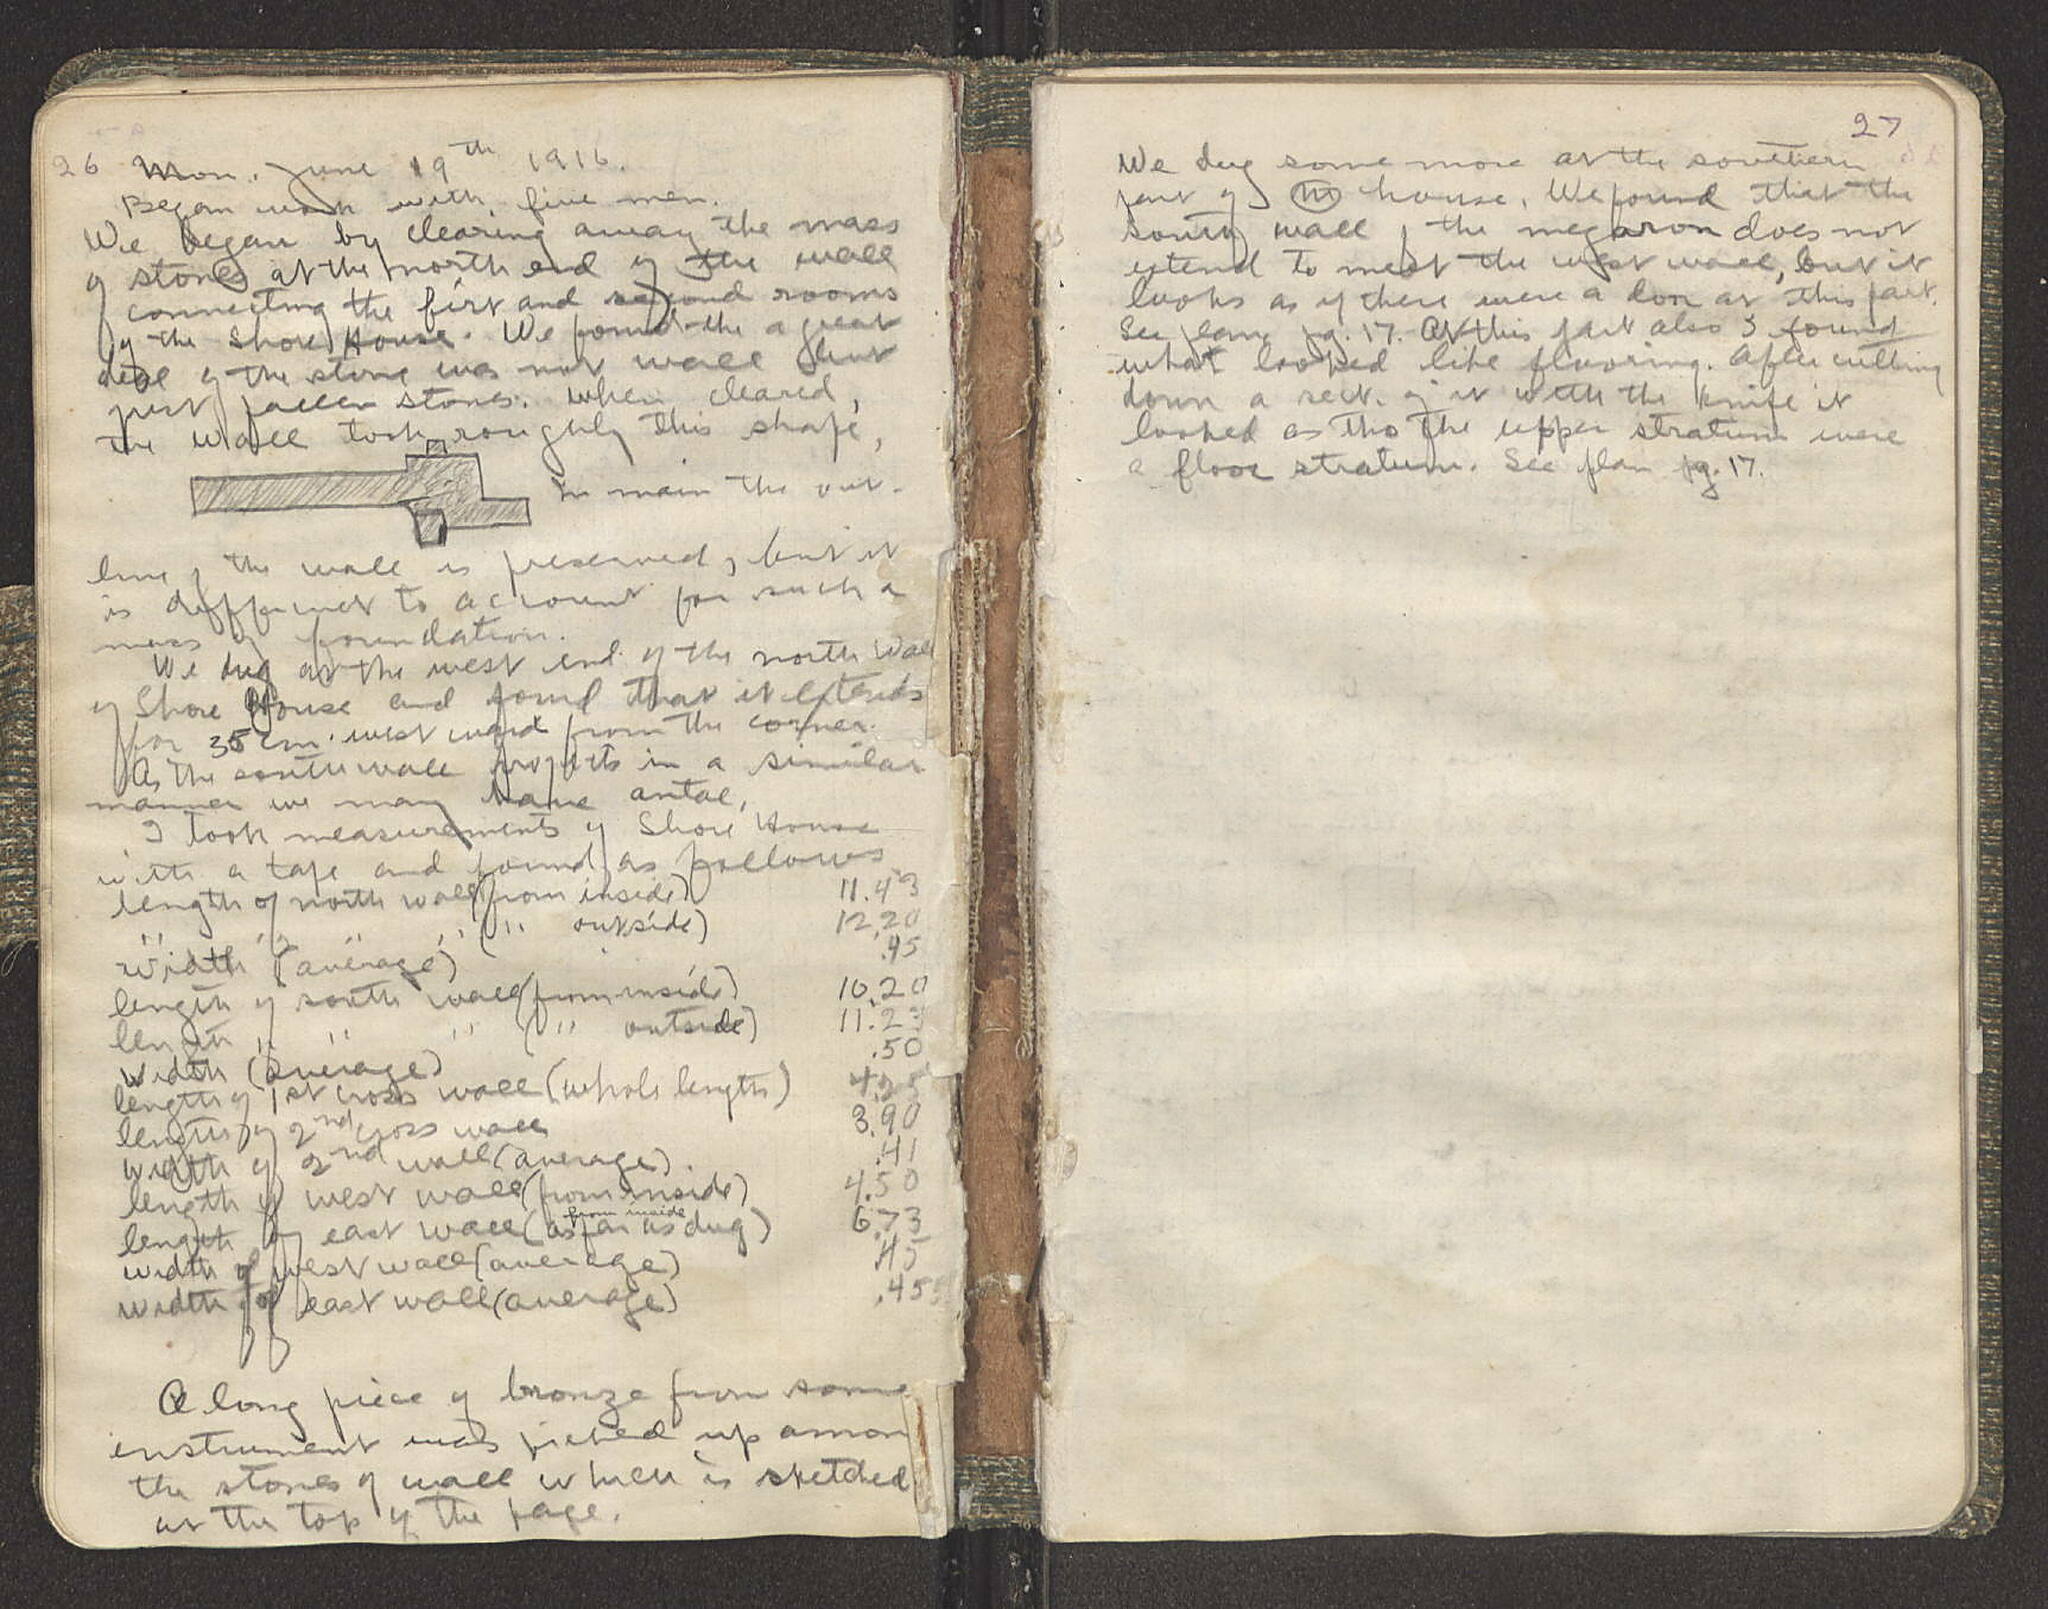 26 Mon. June 19th 1916.
Began work with five men.
We began by clearing away the mass
of stones at the north end of the wall
connecting the first and second rooms
of the Shore House. We found the a great
deal of the stone was not wall but
just fallen stones. When cleared,
the wall took roughly this shape,
In main the out-
line of the wall is preserved, but it
is difficult to account for such a
mass of foundation.
We dug at the west end of the north wall
of Shore House and found that it extends
for 35 cm. westward from the corner.
As the south wall projects in a similar
manner we may have antae,
I took measurements of Shore House
with a tape and found as follows
length of north wall (from inside) 11.43
" " " " (" outside) 12.20
width (average) .45
length of south wall (from inside) 10.20
length " " " (" outside) 11.23
width (average) .50
length of 1st cross wall (whole length) 4.25
length of 2nd cross wall 3.90
width of 2nd wall (average). .41
length of west wall (from inside) 4.50
from inside
length of east wall (as far as dug) 6.73
width of west wall (average) .45
width of east wall (average) .455
A long piece of bronze from some
instrument was picked up amon
the stones of wall which is sketched
at the top of the page.
27
We dug some more at the southern
part of M house. We found that the
south wall of the megaron does not
extend to meet the west wall, but it
looks as if there were a door at this part.
See plan pg. 17. At this part also I found
what looked like flooring. After cutting
down a sect. of it with the knife it
looked as tho the upper stratum were
a floor stratum. See plan pg. 17.